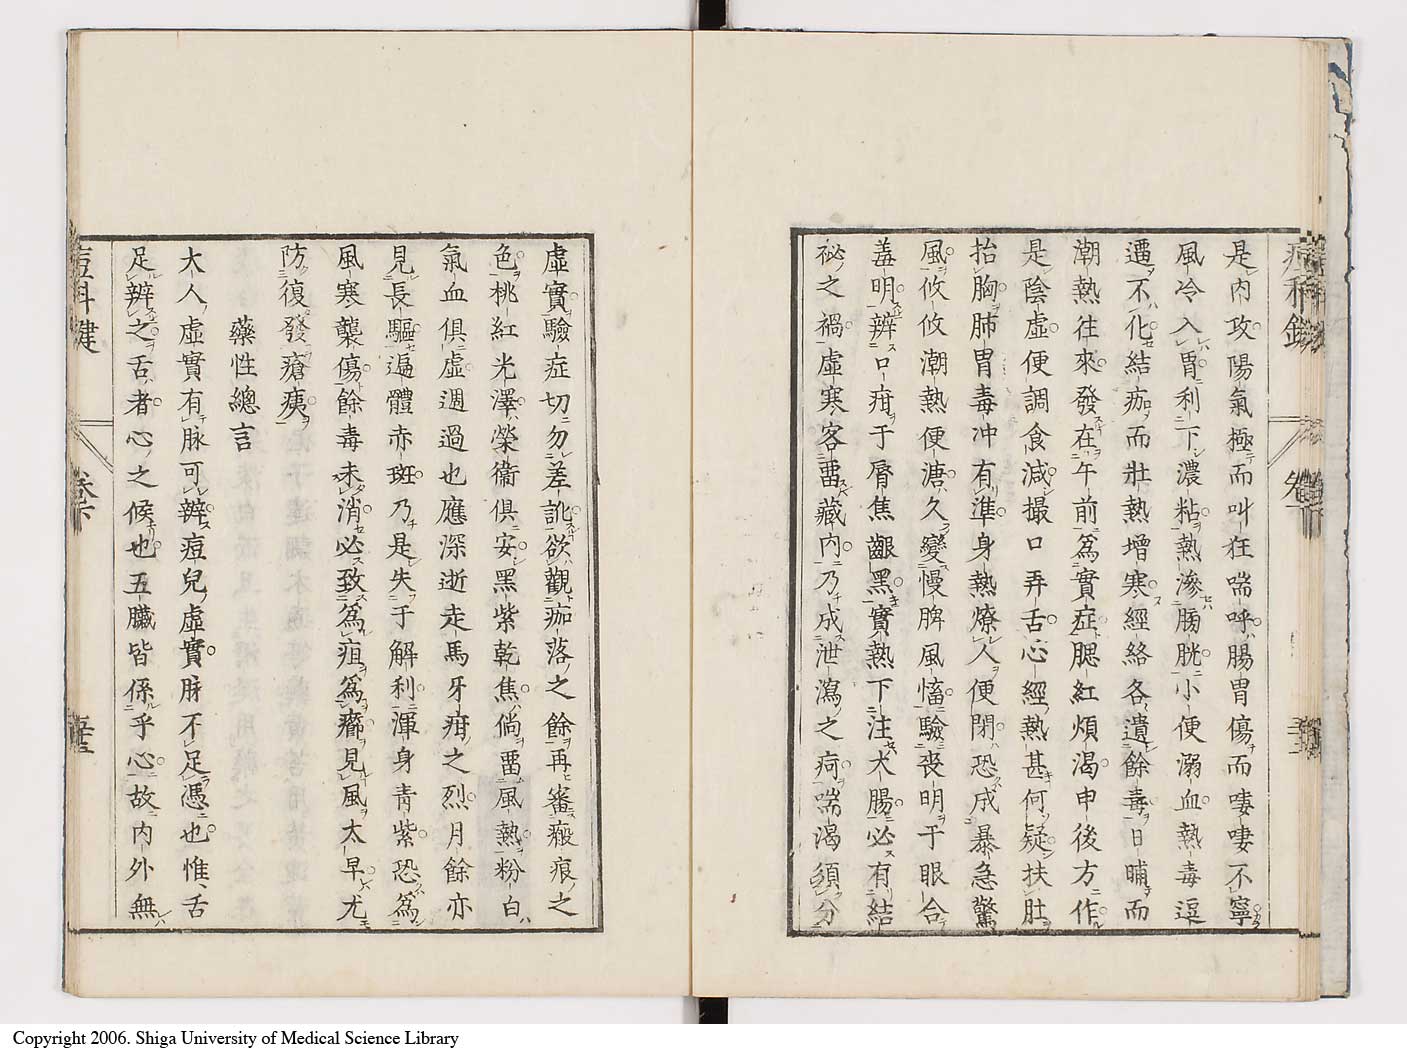 是内攻陽氣極而叫狂喘呼腸胃傷而悽悽不寧
風冷入胃利下濃粘熱滲膀胱小便溺血熱毒逗
遛不化結痂而壯熱增寒經絡各遺餘毒日晡而
潮熱往來發在午前爲實症腮紅煩渴申後方作
是陰虛便調食減撮口弄舌心經熱甚何疑扶肚
抬胸肺胃毒冲有準身熱燎人便閉恐成暴急驚
風攸攸潮熱便溏久變慢脾風惱驗喪明于眼合
羞明辨口疳于脣焦齦黑實熱下注大腸必有結
祕之禍虛寒客畱藏内乃成泄瀉之疴喘渴須分
虛實驗症切勿差訛欲觀痂落之餘再審瘢痕之
色桃紅光澤榮衞俱安黑紫乾焦倘畱風熱粉白
氣血俱虛週過也應深逝走馬牙疳之烈月餘亦
見長驅遍體赤斑乃是失于解利渾身青紫恐爲
風寒襲傷餘毒未消必致爲疽爲癤見風太早尤
防復發瘡痍
藥性總言
大人虛實有脉可辨痘兒虛實脉不足憑也惟舌
足辨之舌者心之候也五臟皆係乎心故内外無
痘科鍵
卷下